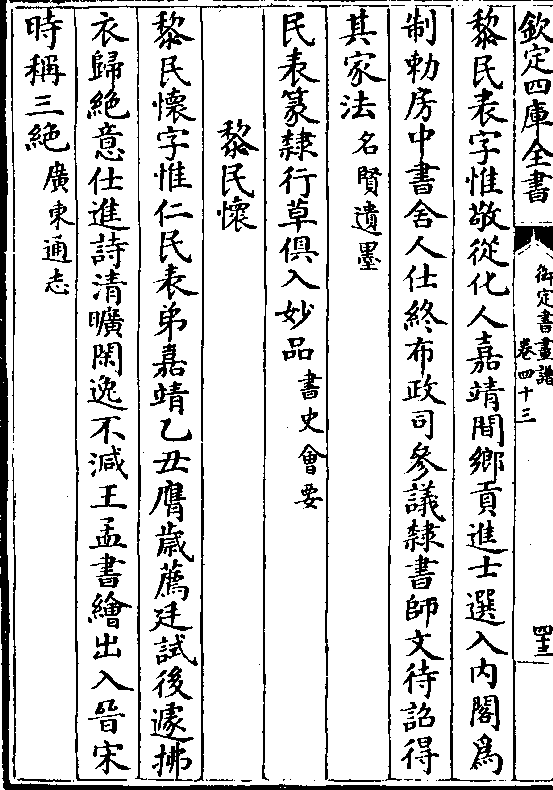 欽定四庫全書
御定書畫譜
卷四十三
黎民表字惟敬從化人嘉靖間鄉貢進士選入内閣爲
制勅房中書舍人仕終布政司參議隸書師文待詔得
其家法名賢遺墨
民表篆隸行草俱入妙品書史會要
黎民懷
黎民懷字惟仁民表弟嘉靖乙丑膺歲薦廷試後遽拂
衣歸絶意仕進詩清曠閑逸不減王孟書繪出入晉宋
時稱三絶廣東通志